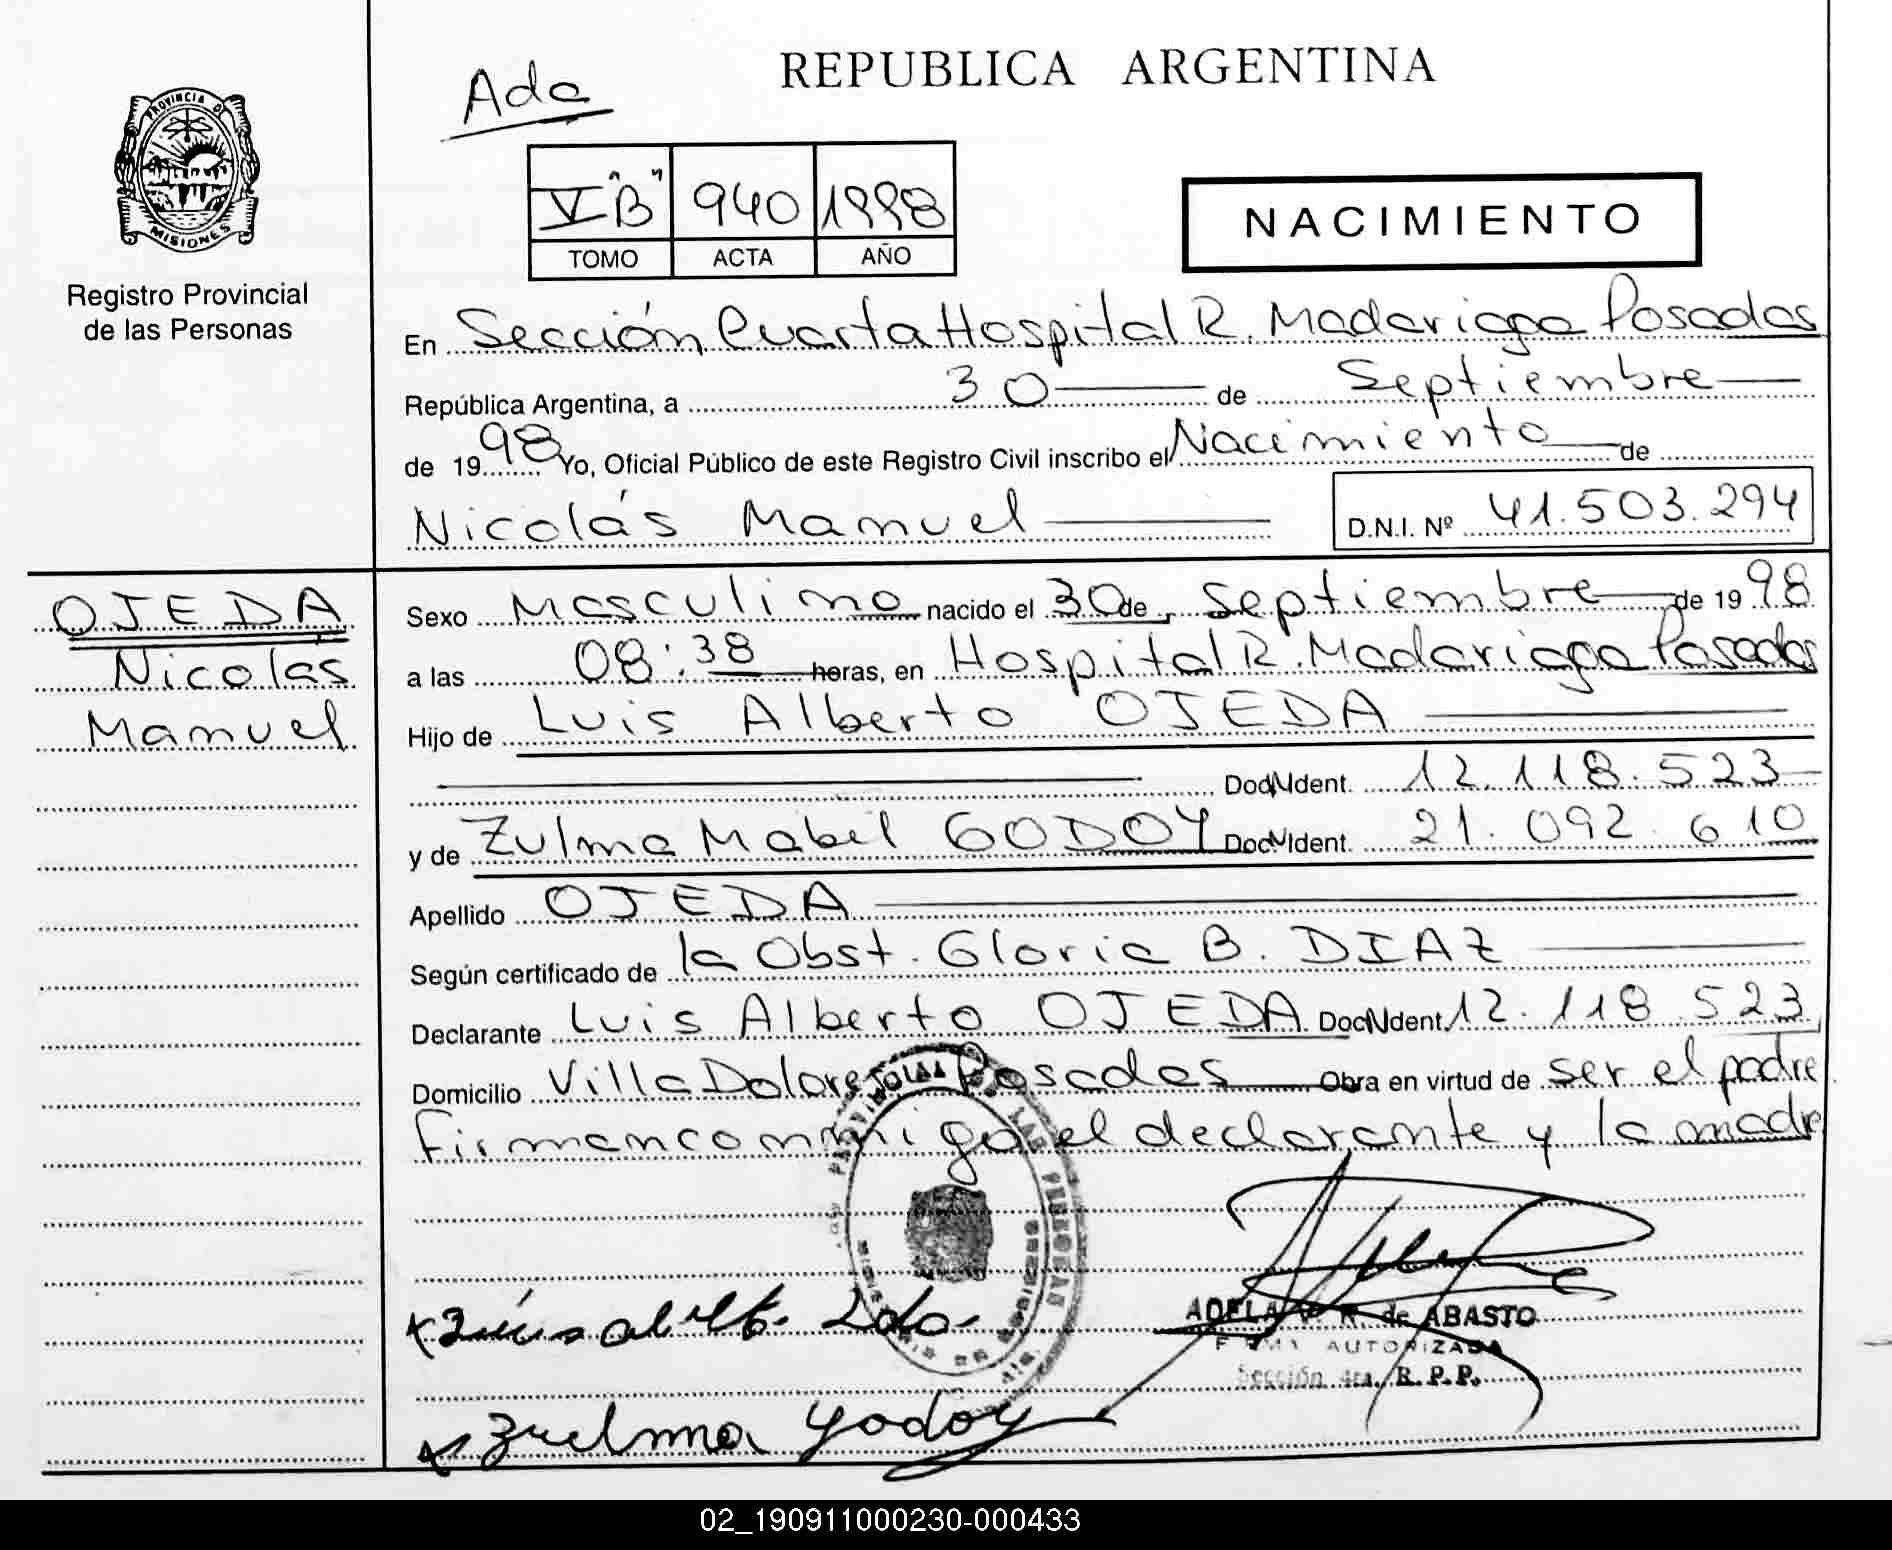 REPUBLICA ARGENTINA
Ada
PROVINCIA DE
MISIONES
V "B" 940 1998
TOMO ACTA AÑO
NACIMIENTO
Registro Provincial
de las Personas
En Sección Cuarta Hospital R. Madariaga Posadas
República Argentina, a 30 de Septiembre
de 1998 Yo, Oficial Público de este Registro Civil inscribo el Nacimiento de
Nicolás Manuel D.N.I. Nº 41.503.294
OJEDA
Nicolás
Manuel
Sexo Masculino nacido el 30 de Septiembre de 1998
a las 08:38 horas, en Hospital R. Madariaga Posadas
Hijo de Luis Alberto OJEDA
Doc. Ident. 12.118.523
y de Zulma Mabel GODOY Doc. Ident. 21.092.610
Apellido OJEDA
Según certificado de la Obst. Gloria B. DIAZ
Declarante Luis Alberto OJEDA Doc. Ident. 12.118.523
Domicilio Villa Dolores Posadas Obra en virtud de ser el padre
firman conmigo el declarante y la madre
ADELA de ABASTO
FIRMA AUTORIZADA
Sección 4ta. R.P.P.
Zulma Godoy
02_190911000230-000433